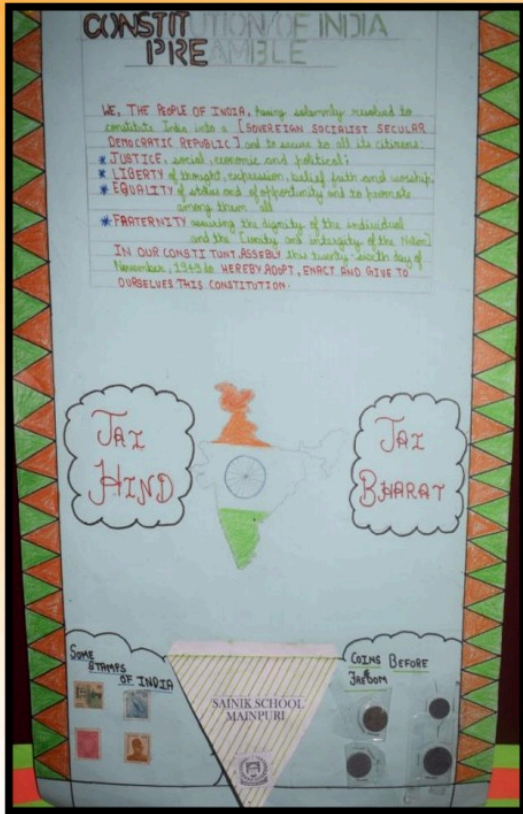 CONSTITUTION OF INDIA
PREAMBLE
WE, THE PEOPLE OF INDIA, having solemnly resolved to
constitute India into a [SOVEREIGN SOCIALIST SECULAR
DEMOCRATIC REPUBLIC] and to secure to all its citizens:
* JUSTICE, social, economic and political;
* LIBERTY of thought, expression, belief faith and worship.
* EQUALITY of status and of opportunity and to promote
among them all
* FRATERNITY assuring the dignity of the individual
and the [unity and intergity of the Nation]
IN OUR CONSTITUNT ASSEBLY this twenty-sixth day of
November, 1949 do HEREBY ADOPT, ENACT AND GIVE TO
OURSELVES THIS CONSTITUTION.
JAI
HIND
JAI
BHARAT
SOME
STAMPS
OF INDIA
SAINIK SCHOOL
MAINPURI
COINS BEFORE
FREEDOM